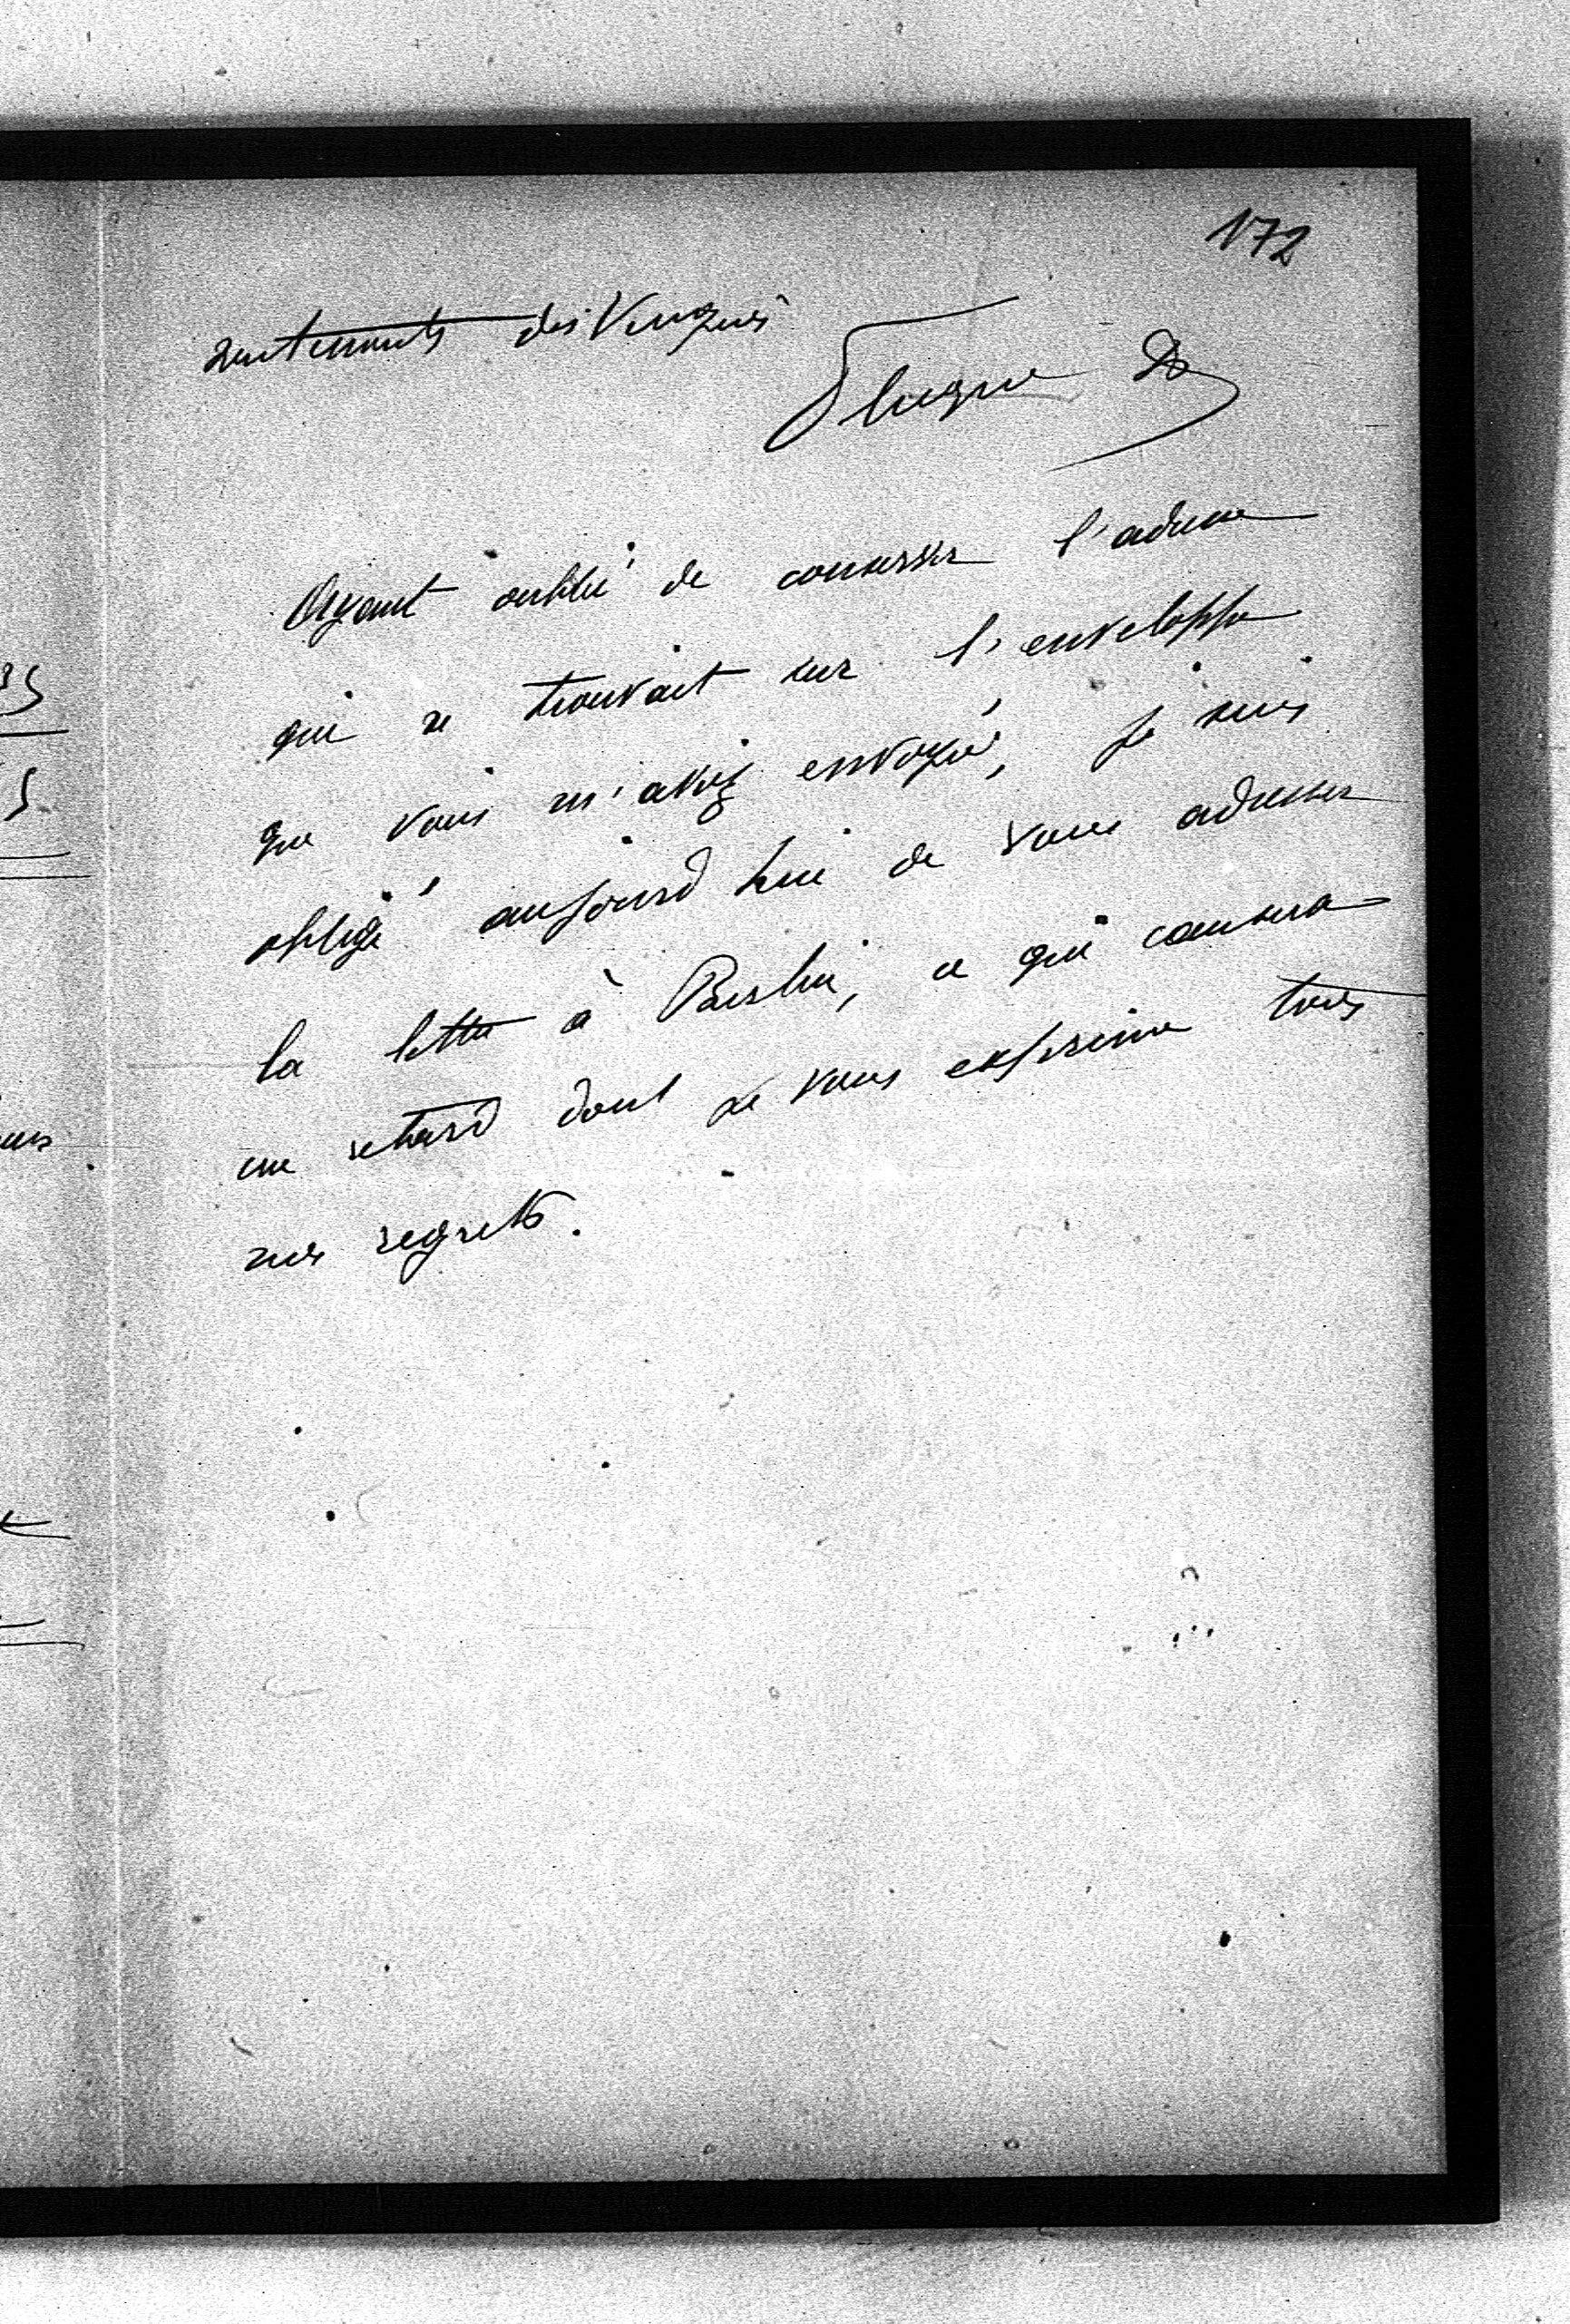 172
sentiments distingués
Ayant oublié de conserver l'adresse
qui se trouvait sur l'enveloppe
que vous m'aviez envoyée, je suis
obligé aujourd'hui de vous adresser
la lettre à, ce qui causera
un retard dont je vous exprime tous
mes regrets.